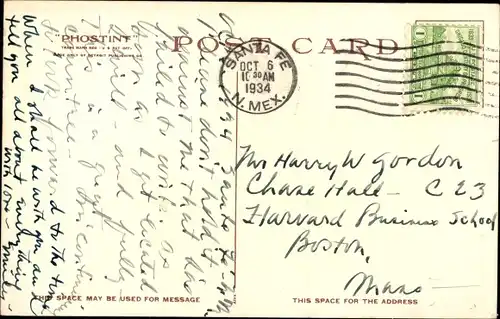 "PHOSTINT"
TRADE MARK REG. U.S. PAT. OFF.
MADE ONLY BY DETROIT PUBLISHING CO.
POST CARD
SANTA FE
OCT 6
10 30 AM
1934
N. MEX.
Oct 5 - 1934 Santa Fe, N.M.
please don't hold it
against me that I've
failed to write so
soon as I get located
I will - and fully
This is a great
country -
I look forward to the time
when I shall be with you and
tell you all about everything
with love -
Mr Harry W Gordon
Chase Hall - C 23
Harvard Business School
Boston,
Mass -
THIS SPACE MAY BE USED FOR MESSAGE
THIS SPACE FOR THE ADDRESS